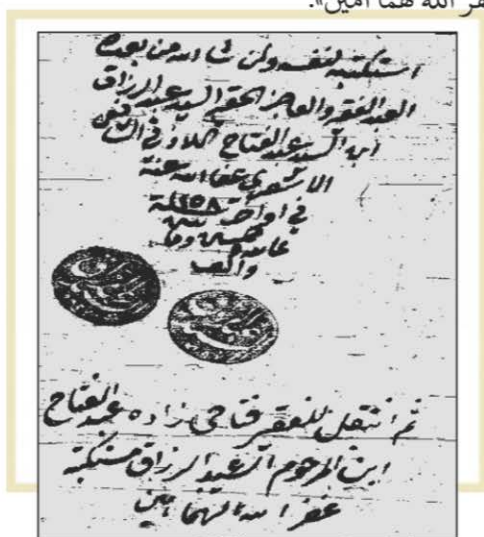 غفر الله لهما آمين».
استكتبه لنفسه ولمن شاء الله من بعده
العبد الفقير والعاجز الحقير السيد عبد الرزاق
ابن السيد عبد الفتاح اللاذقي الشافعي
الاشعري عفا الله عنه
في اواخر سنة ١٢٥٨
وخمسين وما
والف
ثم انتقل للفقير فتاحي زاده عبد الفتاح
ابن المرحوم السيد عبد الرزاق مستكتبه
غفر الله لهما امين